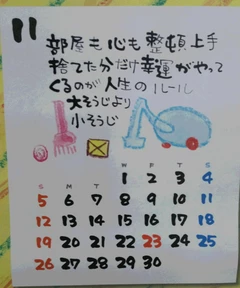 11
部屋も心も整頓上手
捨てた分だけ幸運がやって
くるのが人生のルール
大そうじより
小そうじ
S M T W T F S
1 2 3 4
5 6 7 8 9 10 11
12 13 14 15 16 17 18
19 20 21 22 23 24 25
26 27 28 29 30